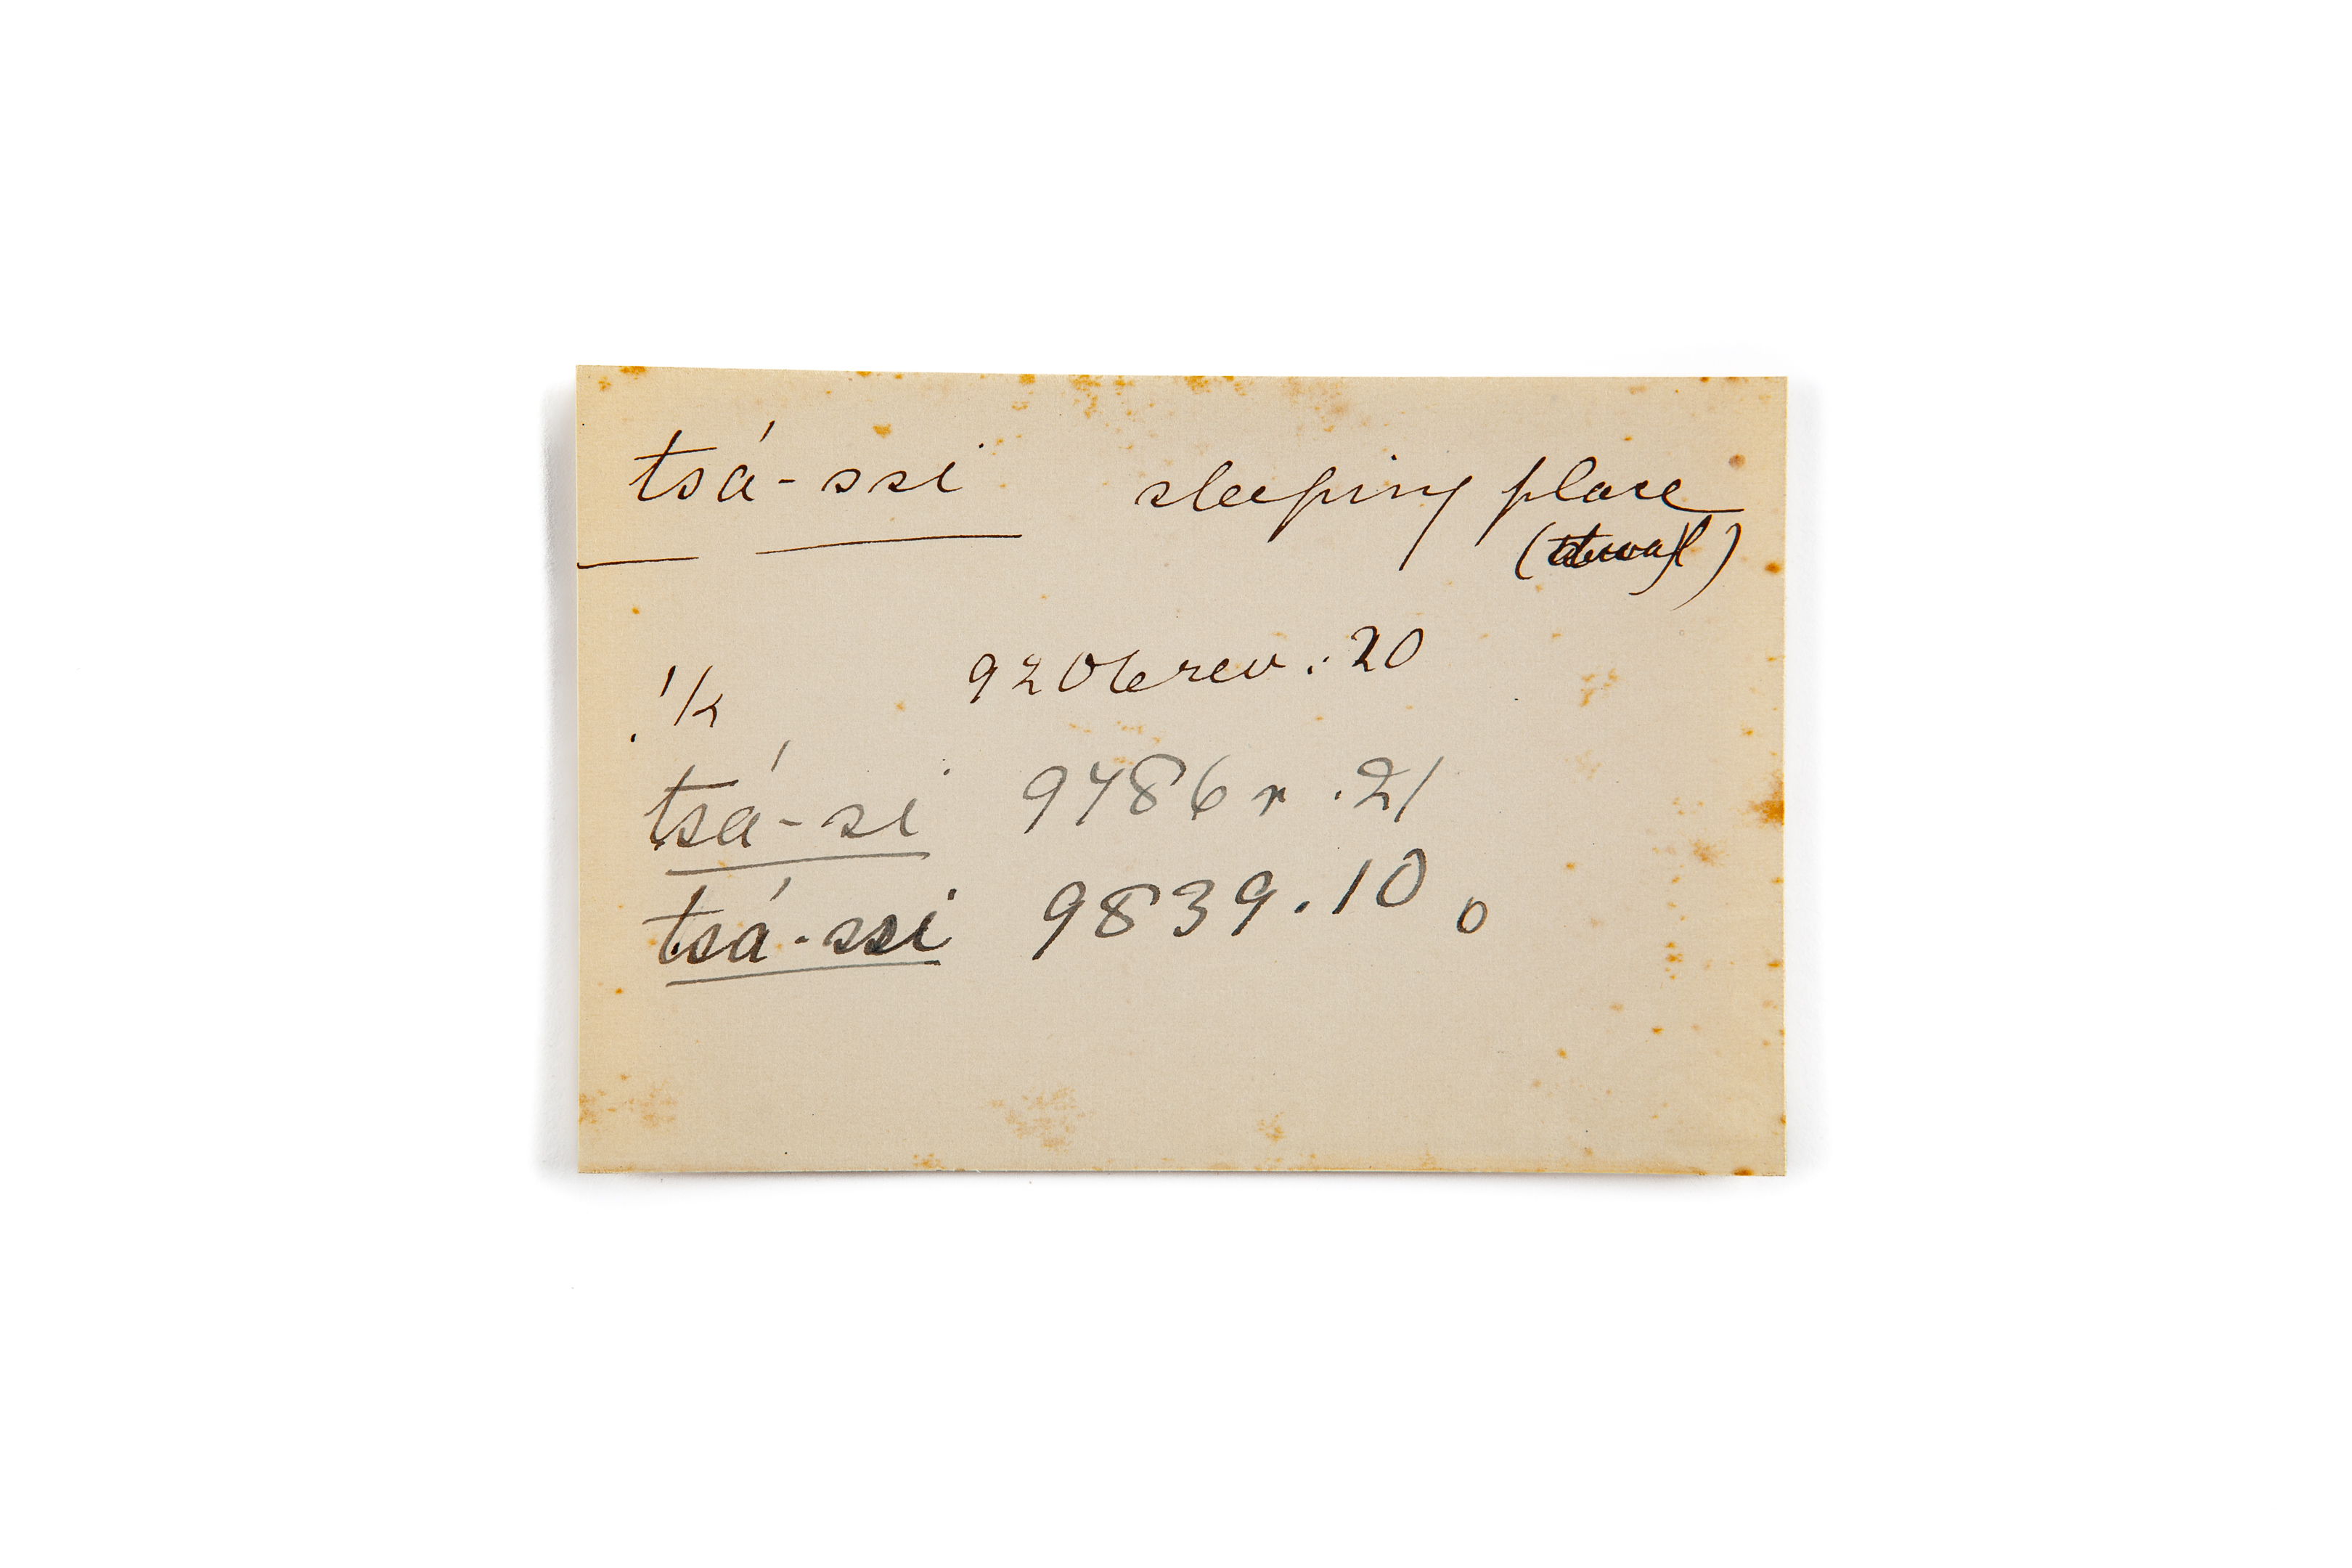 tsá-ssi sleeping place
9206 rev. : 20
tsá-si 9786 r . 21
tsá-ssi 9839.10 o